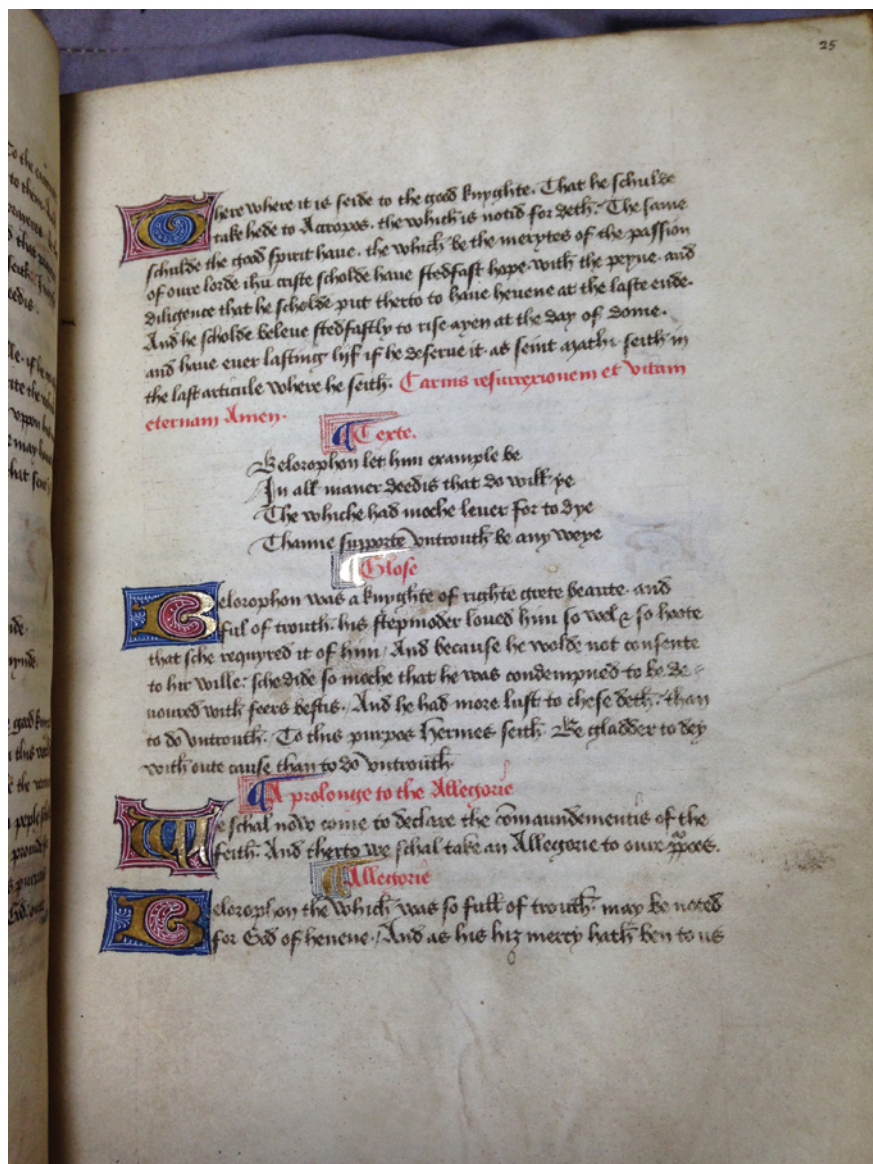 25
There where it is seide to the good knyghte. That he schulde
take hede to Attropos. the which is notid for deth. The same
schulde the good spirit haue. the which be the merytes of the passion
of oure lorde ihu criste scholde haue stedfast hope. with the peyne. and
diligence that he scholde put therto to haue heuene at the laste ende.
And he scholde beleue stedfastly to rise ayen at the day of dome.
and haue euer lasting lyf if he deserue it. as seint mathi seith in
the last articule where he seith. Carnis resurrexionem et vitam
eternam Amen.
Texte.
Belorophon let him example be
In all maner deedis that do will ye
The whiche had moche leuer for to dye
Thanne supporte vntrouth be any weye
Glose
Belorophon was a knyghte of righte grete beaute. and
ful of trouth. his stepmoder loued him so wel & so hoote
that sche requyred it of him / And because he wolde not consente
to hir wille. sche dide so moche that he was condempned to be de-
uoured with feers bestis / And he had more lust to chese deth. than
to do vntrouth. To this purpos Hermes seith. Be gladder to dey
with oute cause than to do vntrouth.
A prologe to the Allegorie
We schal now come to declare the comaundementis of the
feith. And therto we schal take an Allegorie to oure ppos.
Allegorie
Belorophon the which was so full of trouth. may be noted
for God of heuene / And as his hiz mercy hath ben to us